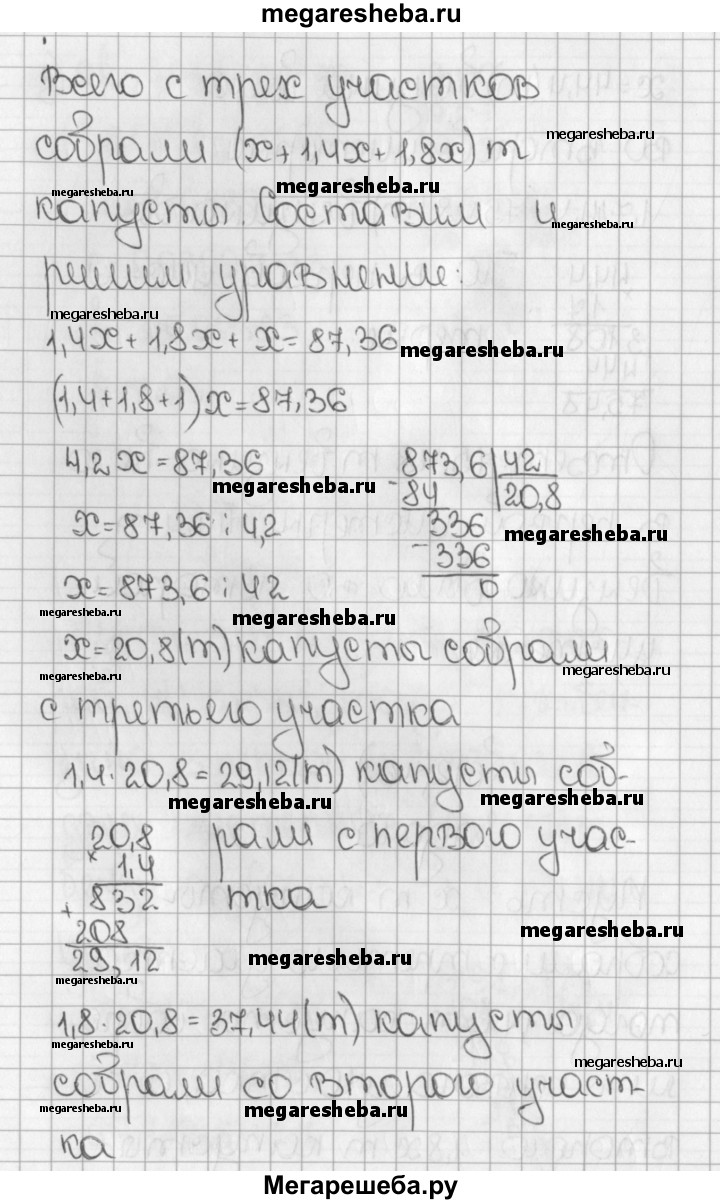 megaresheba.ru
Всего с трех участков
собрали (x+1,4x+1,8x) т
megaresheba.ru
megaresheba.ru
megaresheba.ru
капусты. Составим и
megaresheba.ru
решим уравнение:
megaresheba.ru
1,4x+1,8x+x=87,36
megaresheba.ru
(1,4+1,8+1)x=87,36
4,2x=87,36
873,6 42
megaresheba.ru
- 84 20,8
x=87,36:4,2
336
megaresheba.ru
- 336
x=873,6:42
0
megaresheba.ru
megaresheba.ru
x=20,8(т) капусты собрали
megaresheba.ru
megaresheba.ru
с третьего участка
1,4·20,8=29,12(т) капусты соб-
megaresheba.ru
megaresheba.ru
20,8 рали с первого учас-
× 1,4
+ 832 тка
208
megaresheba.ru
29,12
megaresheba.ru
megaresheba.ru
1,8·20,8=37,44(т) капусты
megaresheba.ru
megaresheba.ru
собрали со второго участ-
megaresheba.ru
megaresheba.ru
ка
Мегарешеба.ру